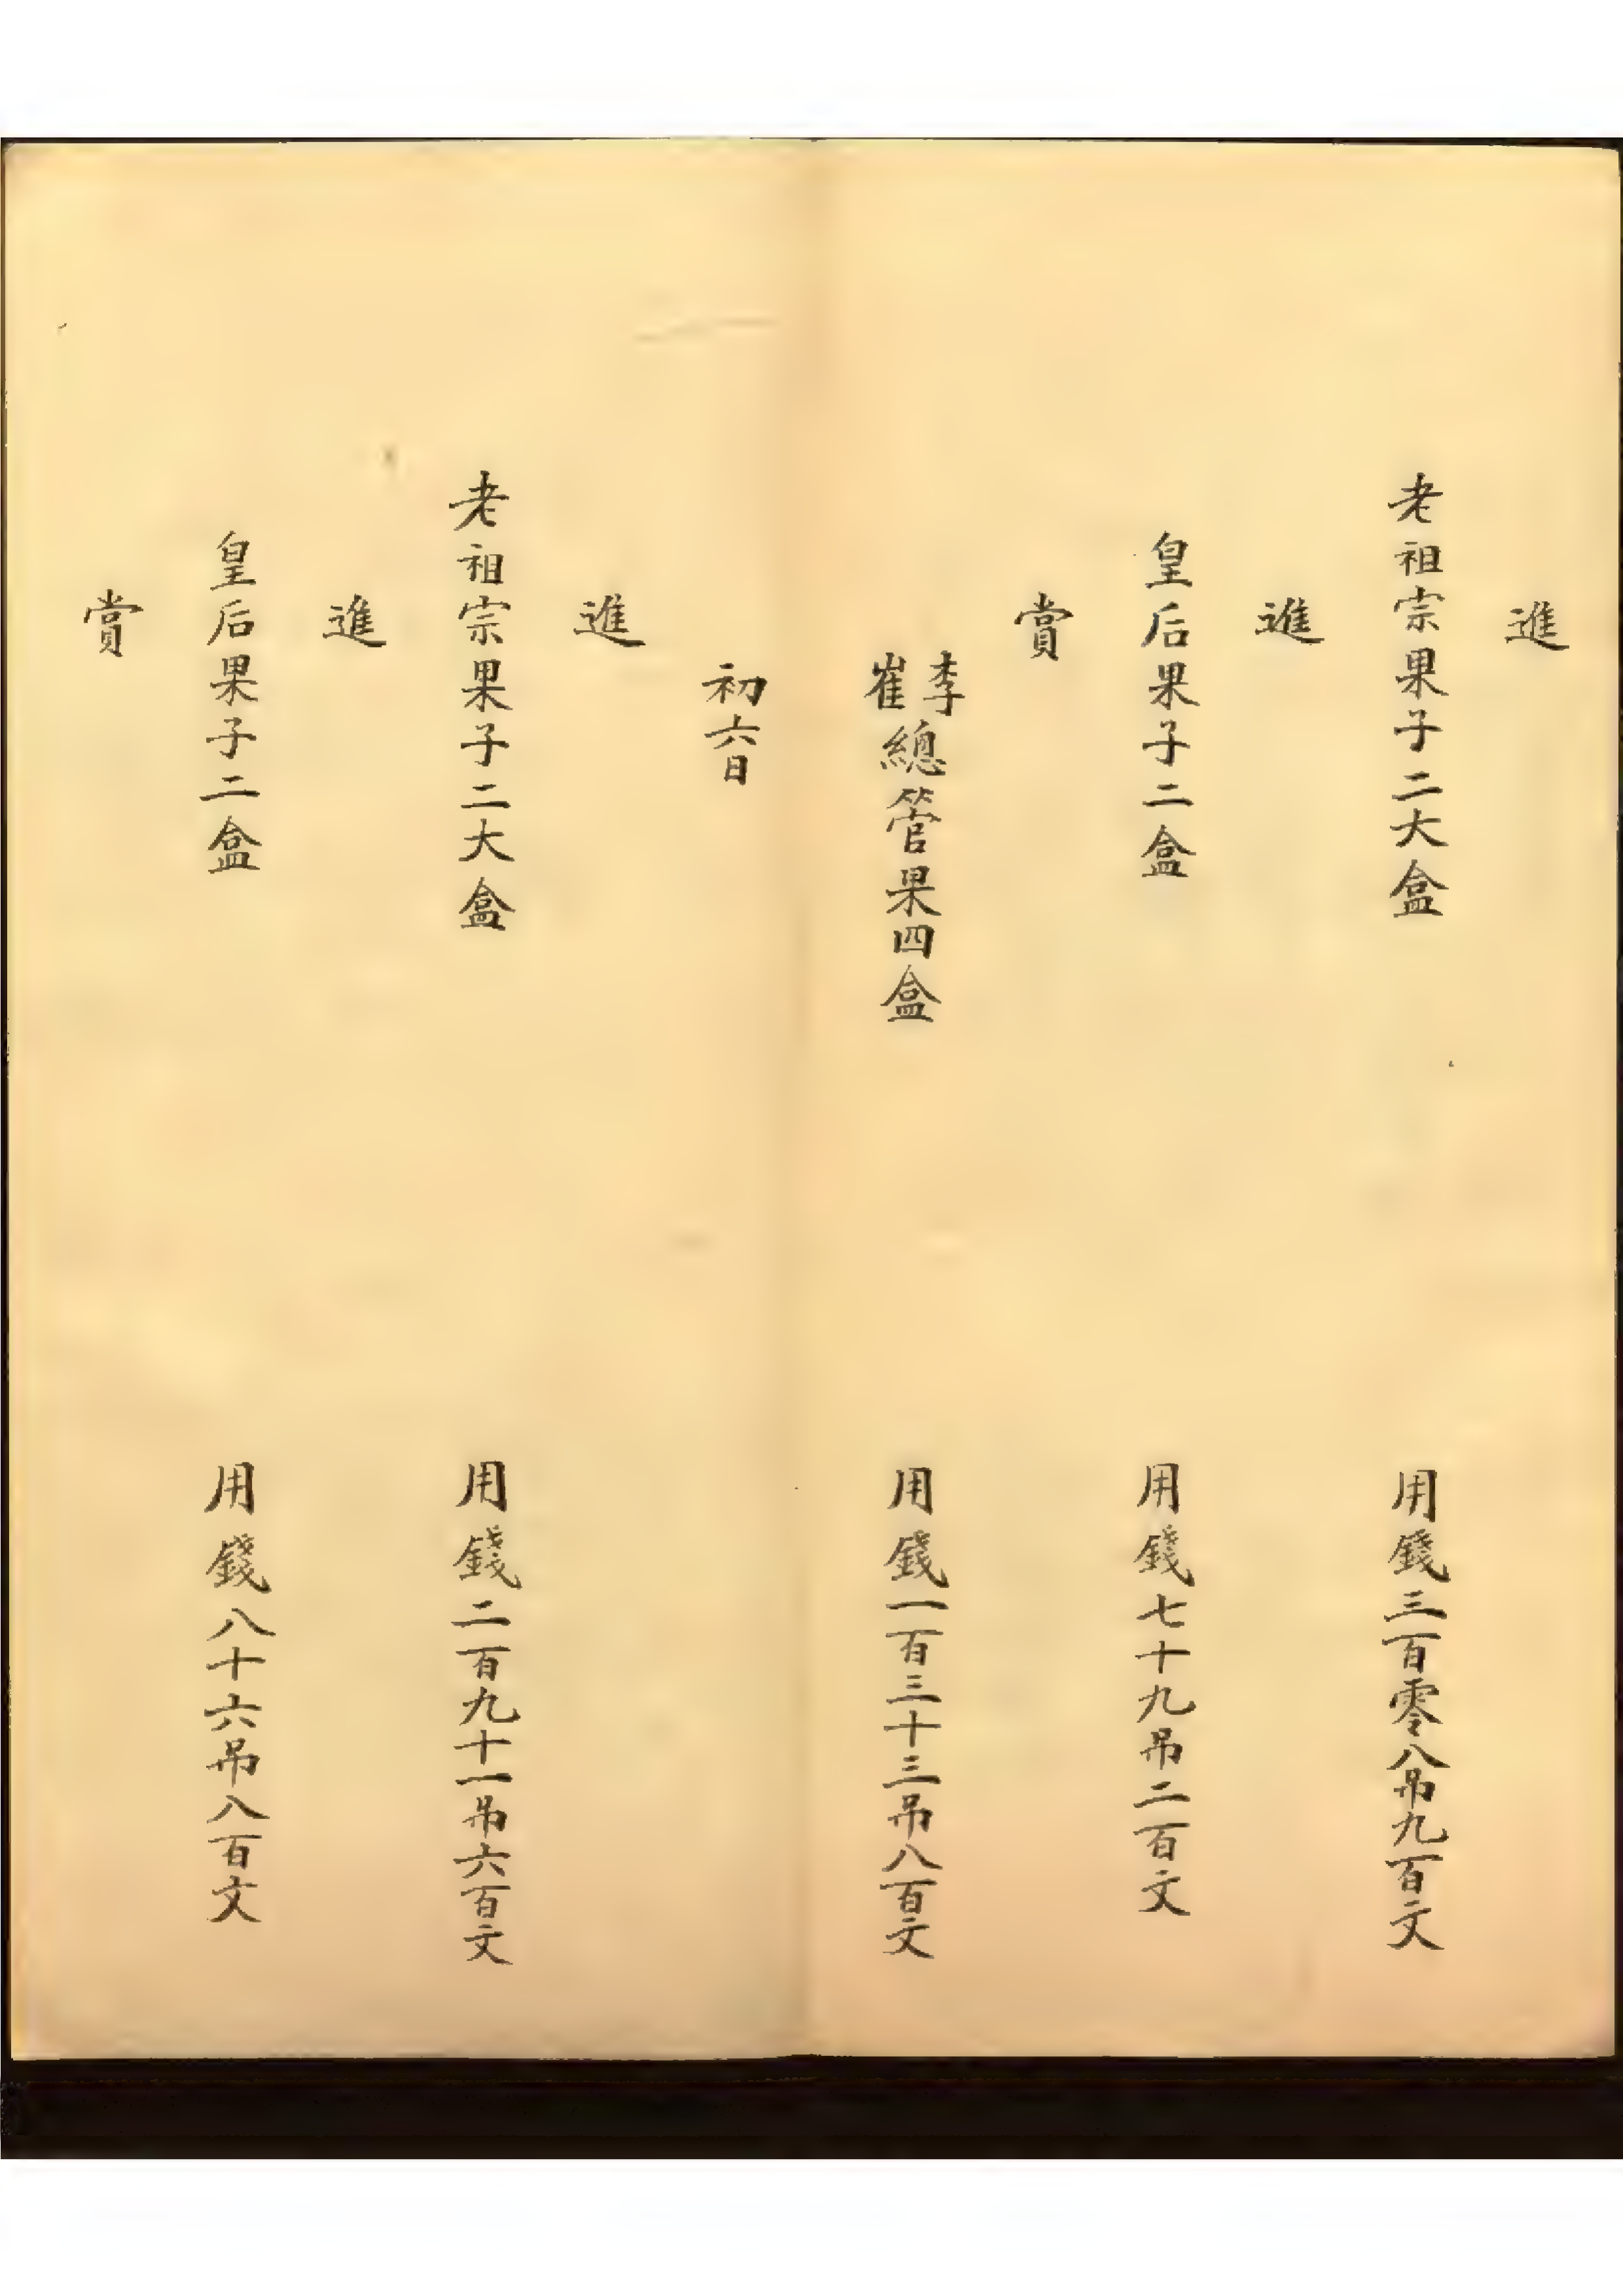 進
老祖宗果子二大盒 用錢三百零八吊九百文
進
皇后果子二盒 用錢七十九吊二百文
賞
李崔總管果四盒 用錢一百三十三吊八百文
初六日
進
老祖宗果子二大盒 用錢二百九十一吊六百文
進
皇后果子二盒 用錢八十六吊八百文
賞